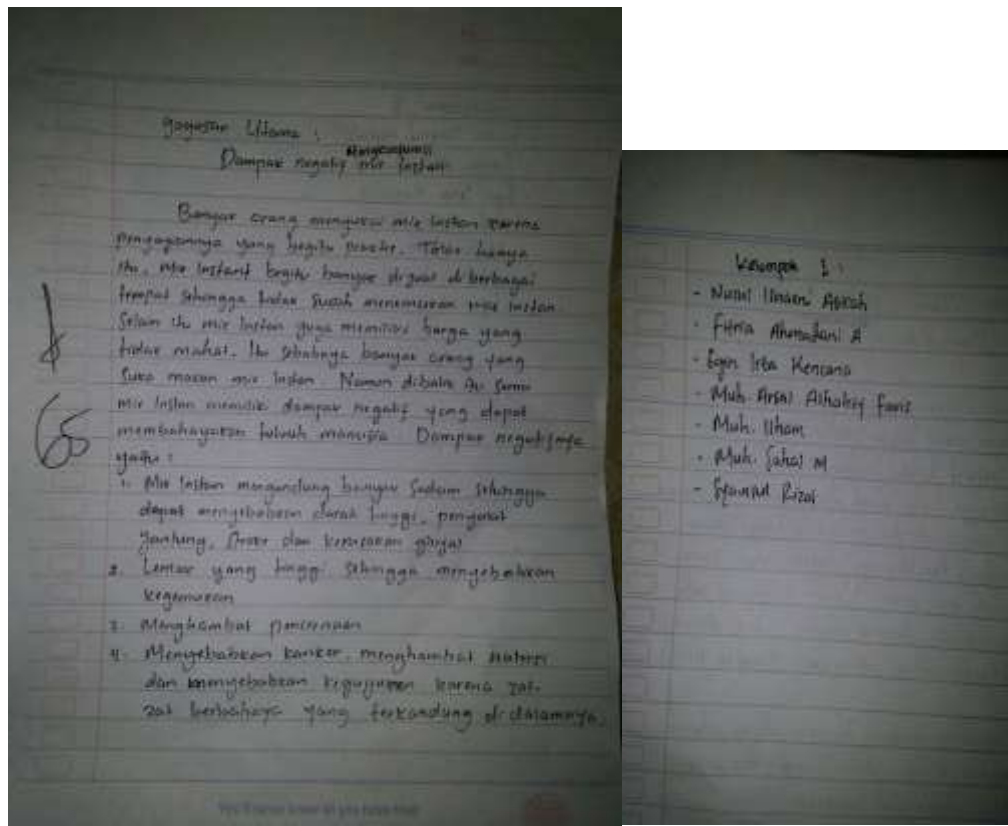 gagasan Utama :
Mengkonsumsi
Dampak negatif mie instan
Banyak orang menyukai mie instan karena
penyajiannya yang begitu praktis. Tidak hanya
itu, mie instant begitu banyak dijual di berbagai
tempat sehingga tidak susah menemukan mie instan
Selain itu mie instan juga memiliki harga yang
tidak mahal. Itu sebabnya banyak orang yang
suka makan mie instan. Namun dibalik itu semua
mie instan memiliki dampak negatif yang dapat
membahayakan tubuh manusia. Dampak negatifnya
yaitu :
1. Mie instan mengandung banyak Sodium sehingga
dapat menyebabkan darah tinggi, penyakit
jantung, Stroke dan kerusakan ginjal
2. Lemak yang tinggi sehingga menyebabkan
kegemukan
3. Menghambat pencernaan
4. Menyebabkan kanker, menghambat nutrisi
dan menyebabkan keguguran karena zat-
zat berbahaya yang terkandung di dalamnya.
65
Kelompok 1 :
- Nurul Ilmaeni
- Fitria Ahmadani A
- Egin Irba Kencana
- Muh. Arsal Faris
- Muh. Ilham
- Muh. Sahal M
- Rizal